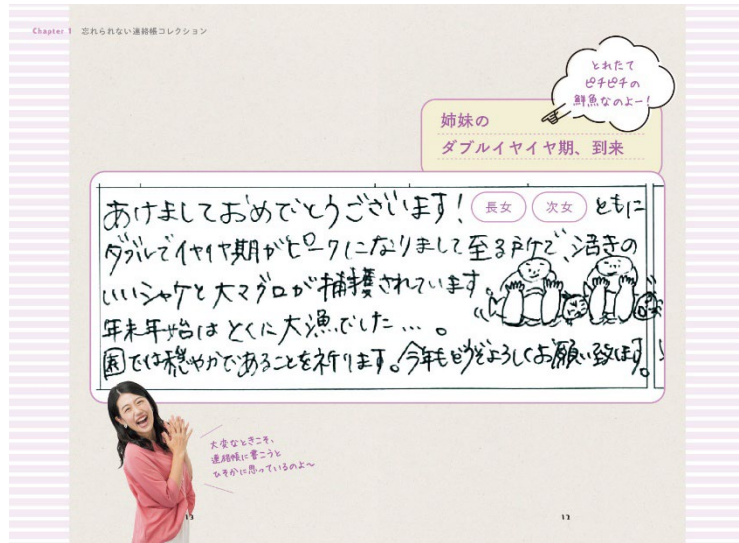 Chapter 1 忘れられない連絡帳コレクション
とれたて
ピチピチの
鮮魚なのよー!
姉妹の
ダブルイヤイヤ期、到来
あけましておめでとうございます! 長女 次女 ともに
ダブルでイヤイヤ期がピークになりまして至る所で、活きの
いいシャケと大マグロが捕獲されています。
年末年始はとくに大漁でした…。
園では穏やかであることを祈ります。今年もどうぞよろしくお願い致します。
大変なときこそ、
連絡帳に書こうと
ひそかに思っているのよ〜
13 12